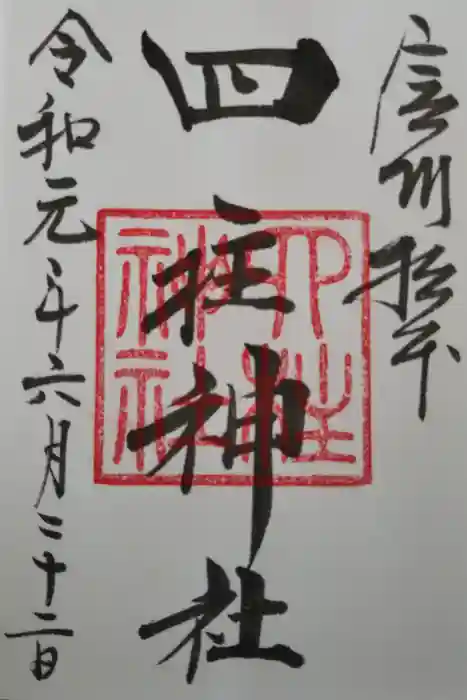 信州松本
四柱神社
四柱神社
令和元年六月二十二日